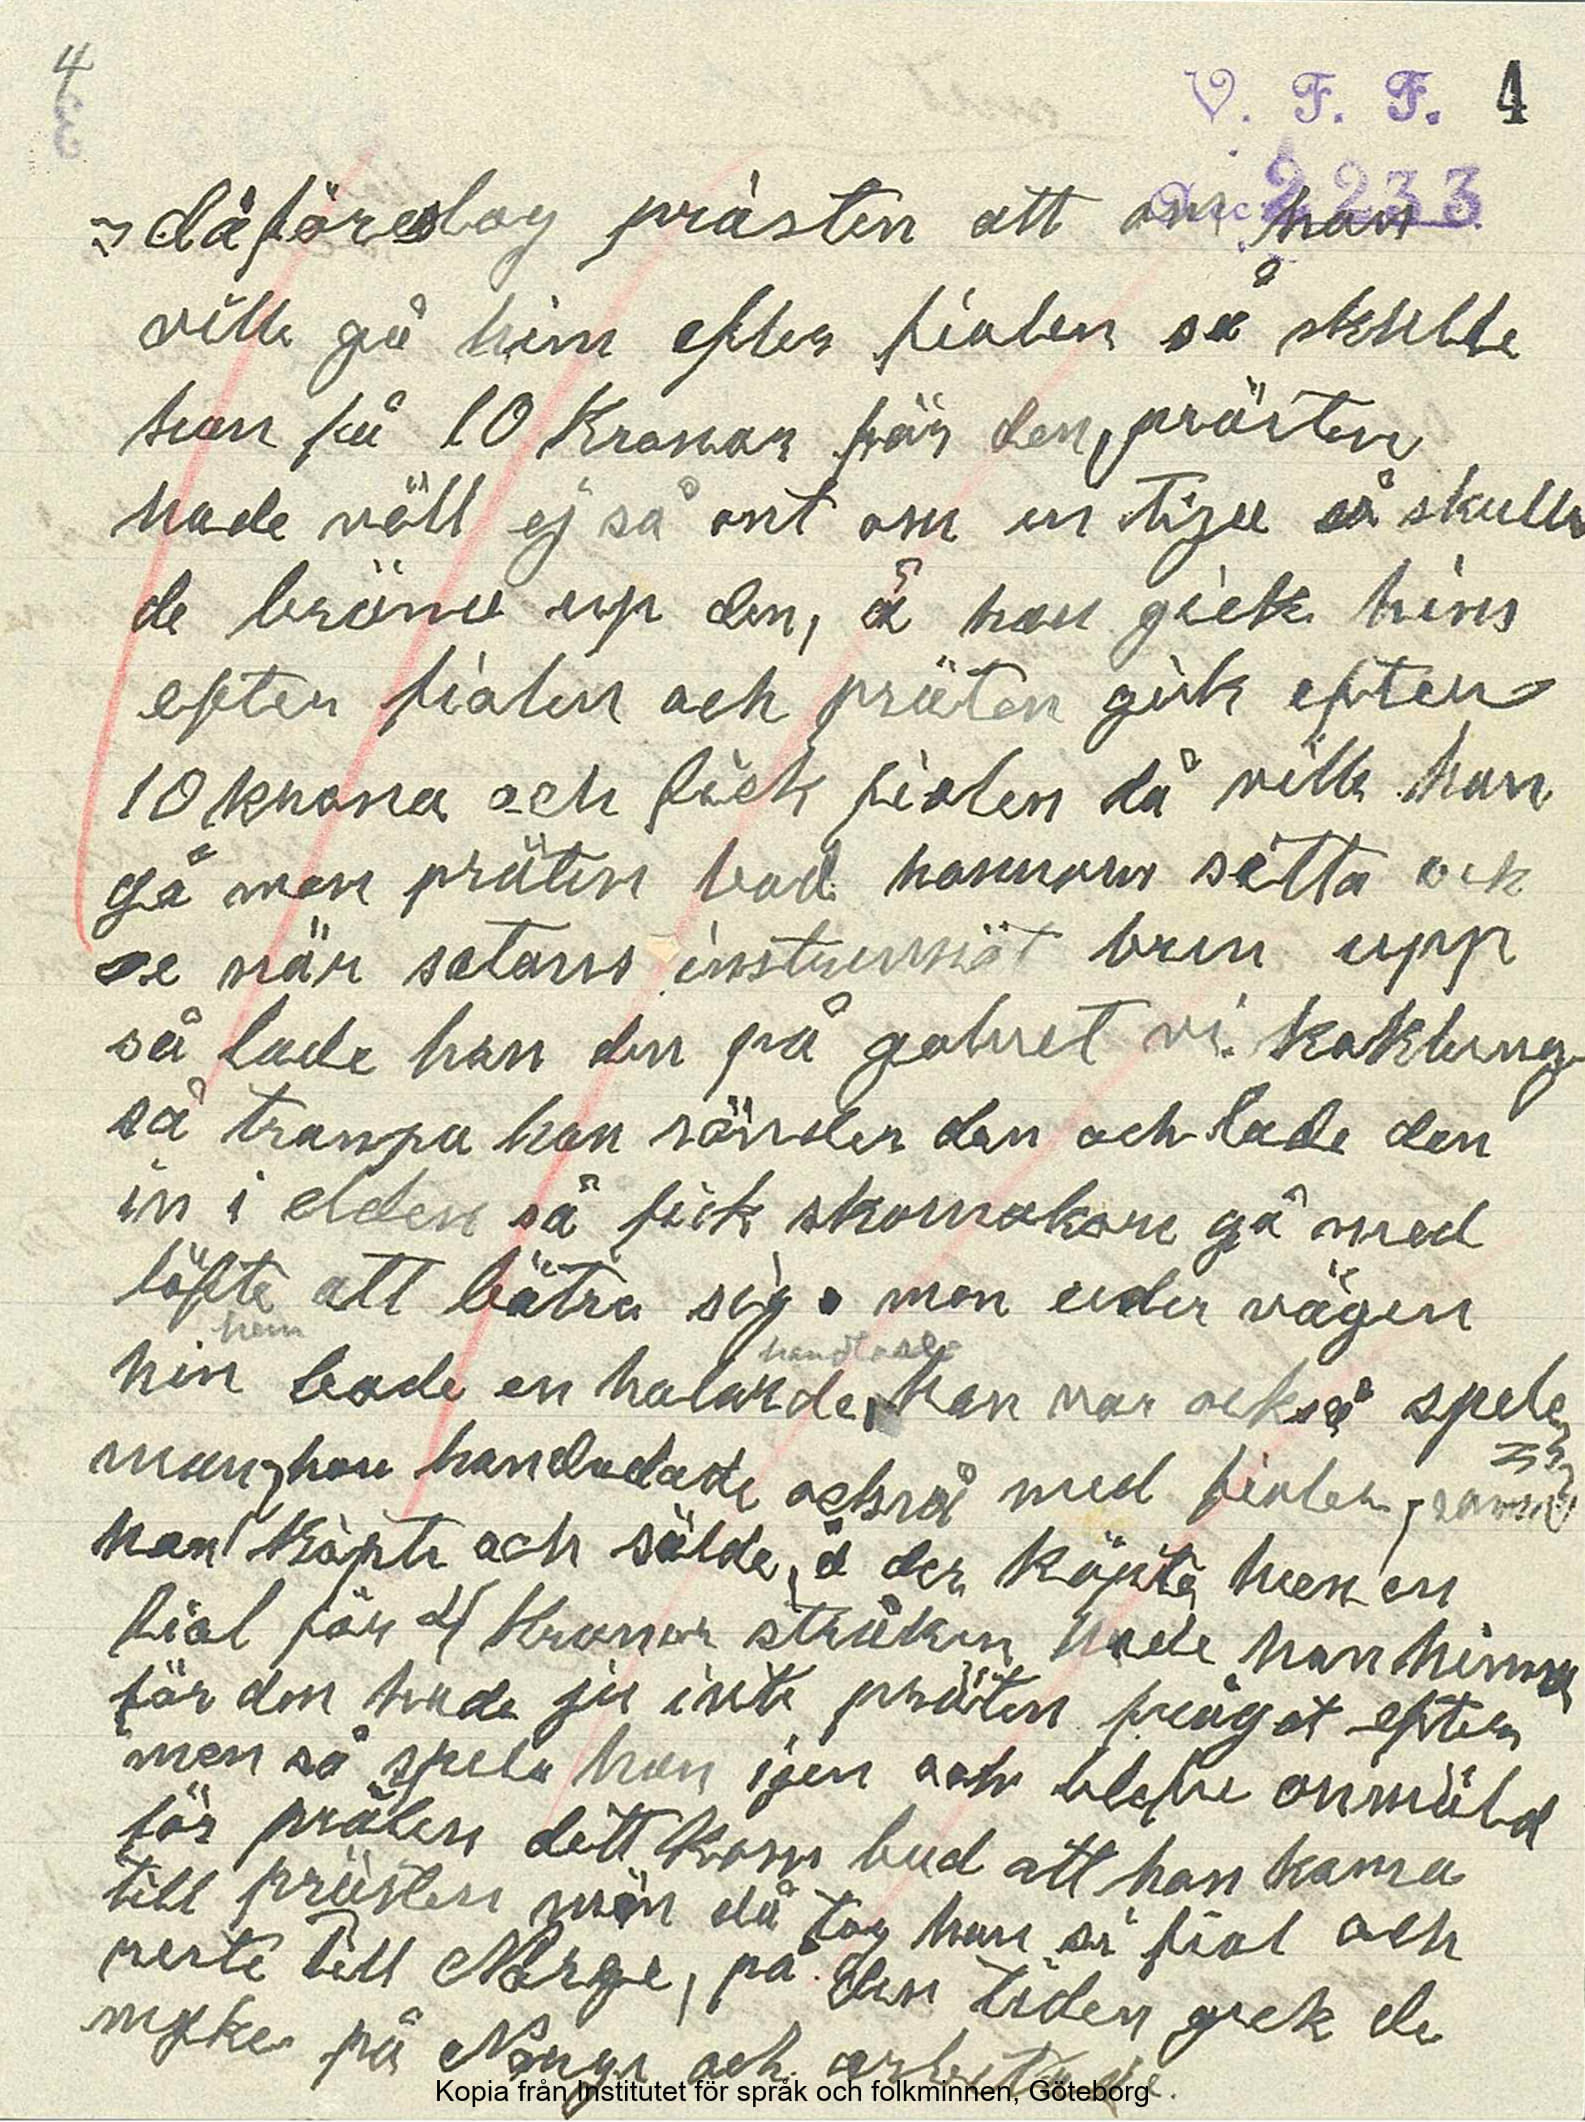 4
3
V. F. F. 4
Acc. 2233
då föreslog prästen att om han
ville gå him efter fiolen så skulle
han få 10 Kronor för den, prästen
hade väll ej så ont om en tige så skulle
de bränu up den, å han gick him
efter fiolen och präten gick efter
10 krona och fick fiolen då ville han
gå men präten bad honnom sitta och
se när satans instrumöt brin upp
så lade han den på golvet vi. kaklung
så trampa han sönder den och lade den
in i elden så fick skomakare gå med
löfte att bätra sig. men under vägen
hem
handlade
hin bode en halarde, han var också spele
man, han handlade också med fioler, som
han köpte och sålde, å der köpte han en
fiol för 4 Kronor stråken hade han himma
för den hade ju inte präten frågat efter
men så spela han igen och blefve anmäld
för prästen ditt kom bud att han koma
till prästen men då tog han si fiol och
reste till Norge, på den tiden gick de
myke på Norge och arbetade.
Kopia från Institutet för språk och folkminnen, Göteborg